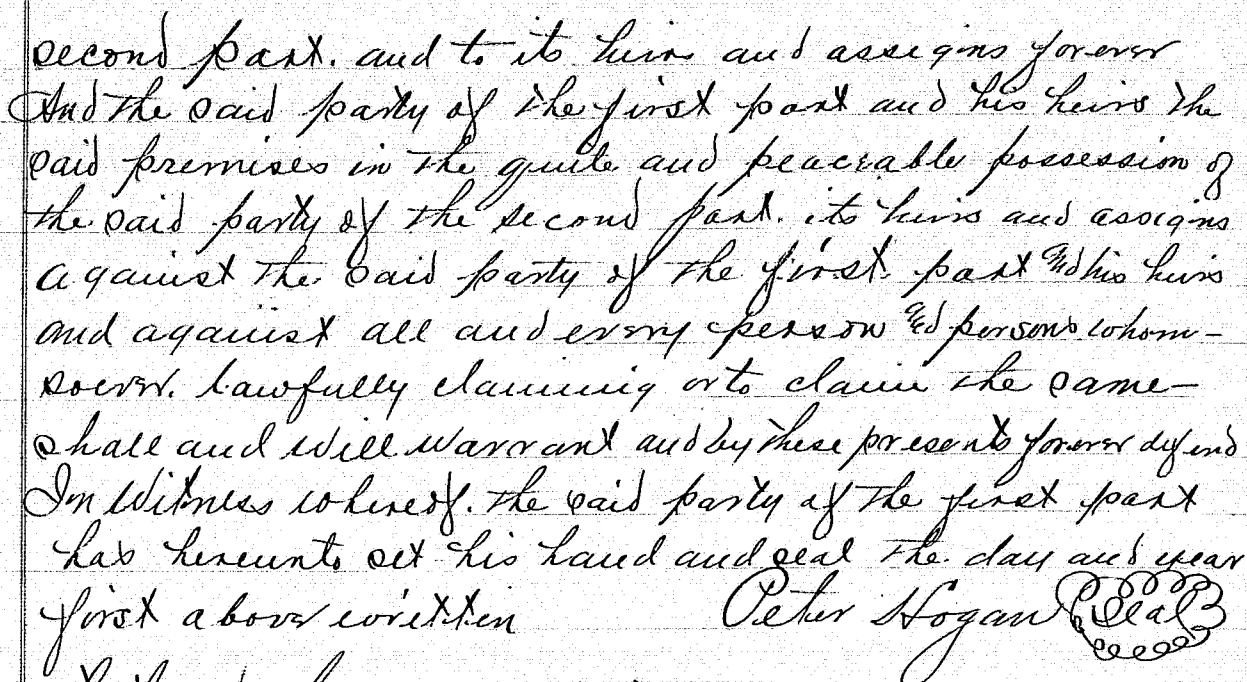 second part. and to its heirs and assigns forever
And the said party of the first part and his heirs the
said premises in the quite and peaceable possession of
the said party of the second part. its heirs and assigns
against the said party of the first part and his heirs
and against all and every person and persons whom-
soever. lawfully claiming or to claim the same-
shall and will warrant and by these presents forever defend
In Witness whereof. the said party of the first part
has hereunto set his hand and seal the day and year
first above written Peter Hogan Seal